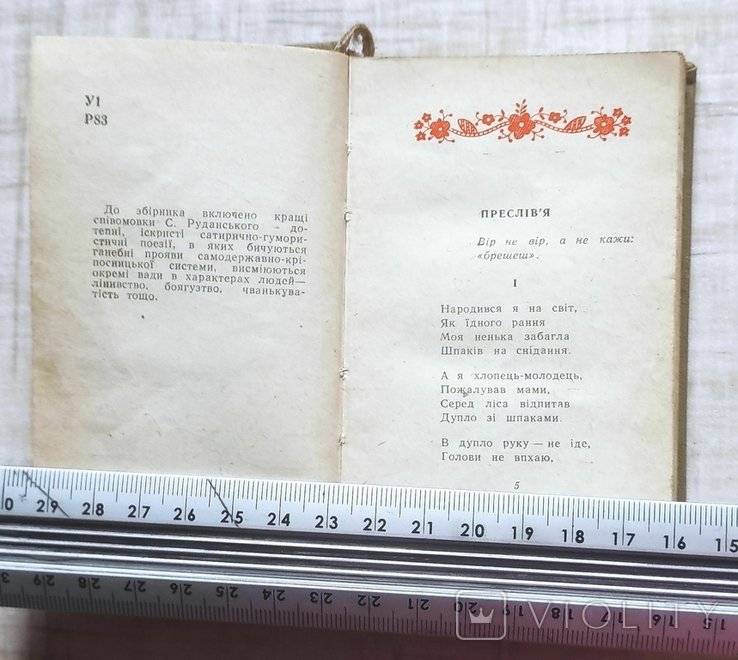 У1
Р83
До збірника включено кращі
співомовки С. Руданського – до-
тепні, іскристі сатирично-гумори-
стичні поезії, в яких бичуються
ганебні прояви самодержавно-крі-
посницької системи, висміюються
окремі вади в характерах людей—
лінивство, боягузтво, чванькува-
тість тощо.
ПРЕСЛІВ'Я
Вір не вір, а не кажи:
«брешеш».
І
Народився я на світ,
Як їдного рання
Моя ненька забагла
Шпаків на снідання.
А я хлопець-молодець,
Пожалував мами,
Серед ліса відпитав
Дупло зі шпаками.
В дупло руку — не іде,
Голови не впхаю,
5
0 29 28 27 26 25 24 23 22 21 20 19 18 17 16 15
3 29 28 27 26 25 24 23 22 21 20 19 18 17 16 15
VIOLITY